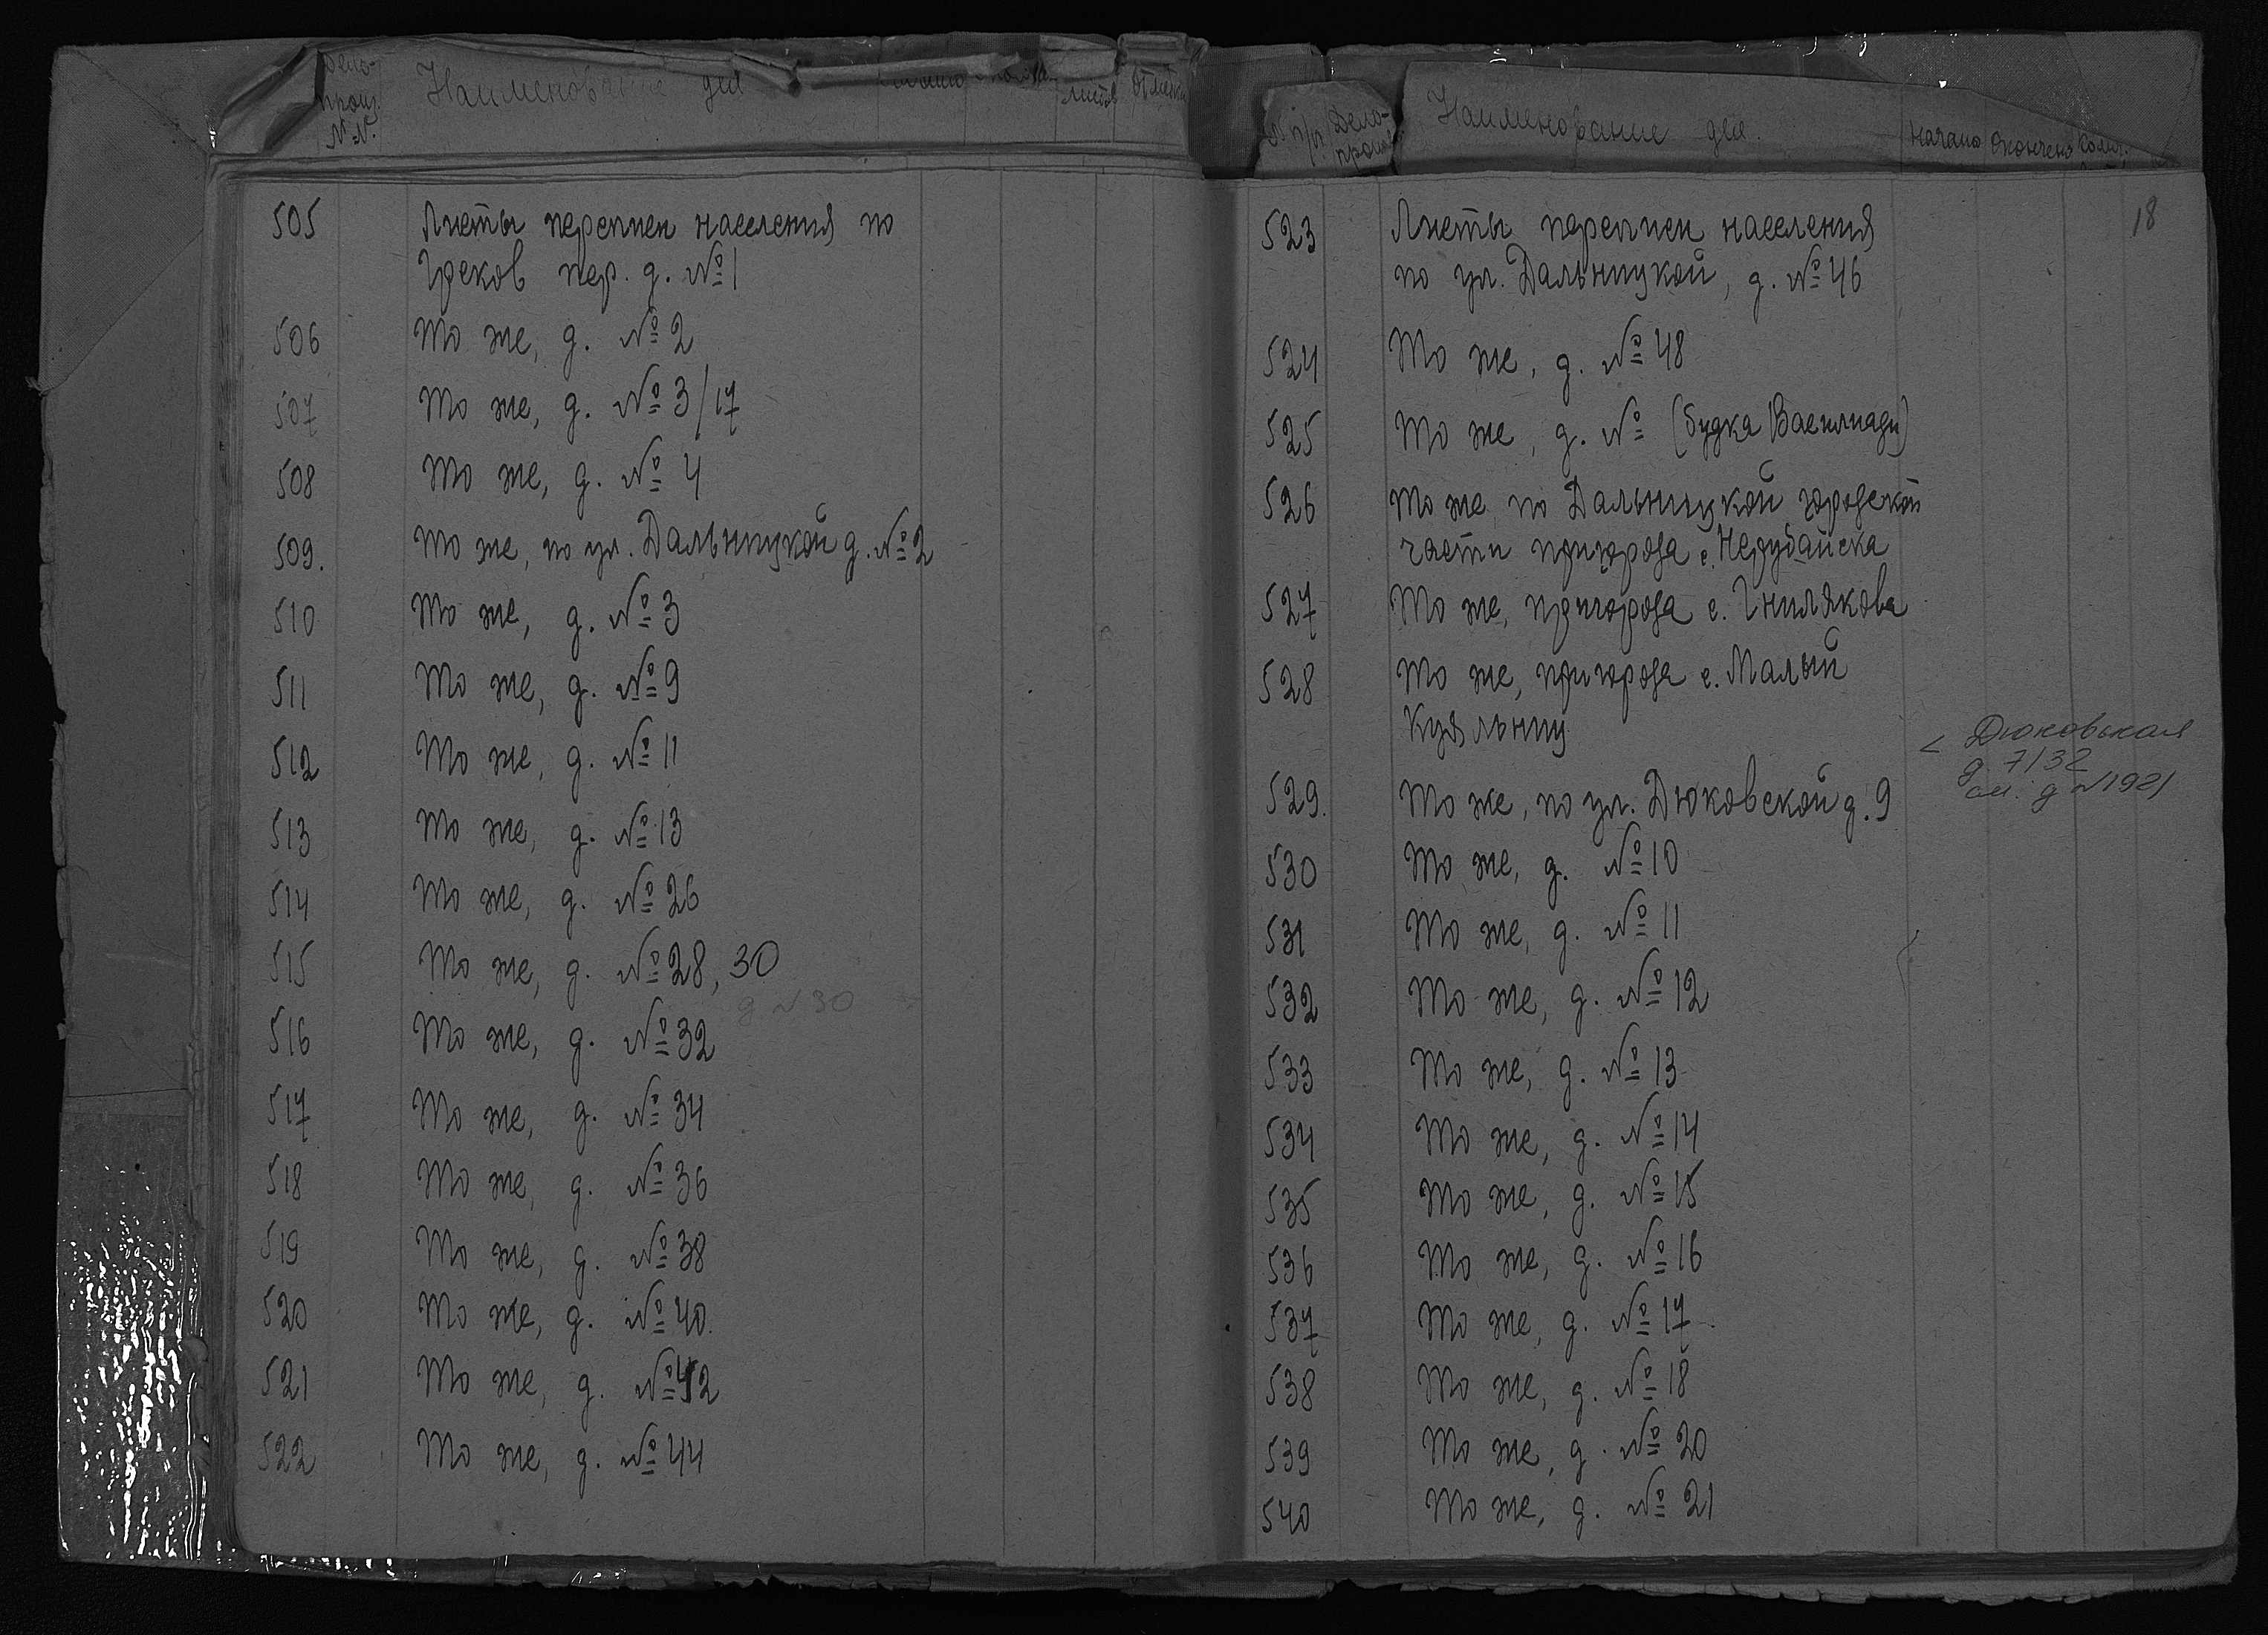 Дело-
произ.
N.N.
Наименование дел
листов
505 Листы переписи населения по
Греков пер. д. № 1
506 То же, д. № 2
507 То же, д. № 3/17
508 То же, д. № 4
509. То же, по ул. Дальницкой д. № 2
510 То же, д. № 3
511 То же, д. № 9
512 То же, д. № 11
513 То же, д. № 13
514 То же, д. № 26
515 То же, д. № 28, 30
д N 30
516 То же, д. № 32
517 То же, д. № 34
518 То же, д. № 36
519 То же, д. № 38
520 То же, д. № 40.
521 То же, д. № 42
522 То же, д. № 44
п/п Дело-
произв
Наименование дел.
Начато Окончено Колич.
18
523 Листы переписи населения
по ул. Дальницкой, д. № 46
524 То же, д. № 48
525 То же, д. № (будка Василиади)
526 То же по Дальницкой городской
части пригорода с. Нерубайска
527 То же, пригорода с. Гнилякова
528 То же, пригорода с. Малый
Куяльниц
< Дюковская
д 7/32
см. д N 1921
529. То же, по ул. Дюковской д. 9
530 То же, д. № 10
531 То же, д. № 11
532 То же, д. № 12
533 То же, д. № 13
534 То же, д. № 14
535 То же, д. № 15
536 То же, д. № 16
537 То же, д. № 17
538 То же, д. № 18
539 То же, д. № 20
540 То же, д. № 21